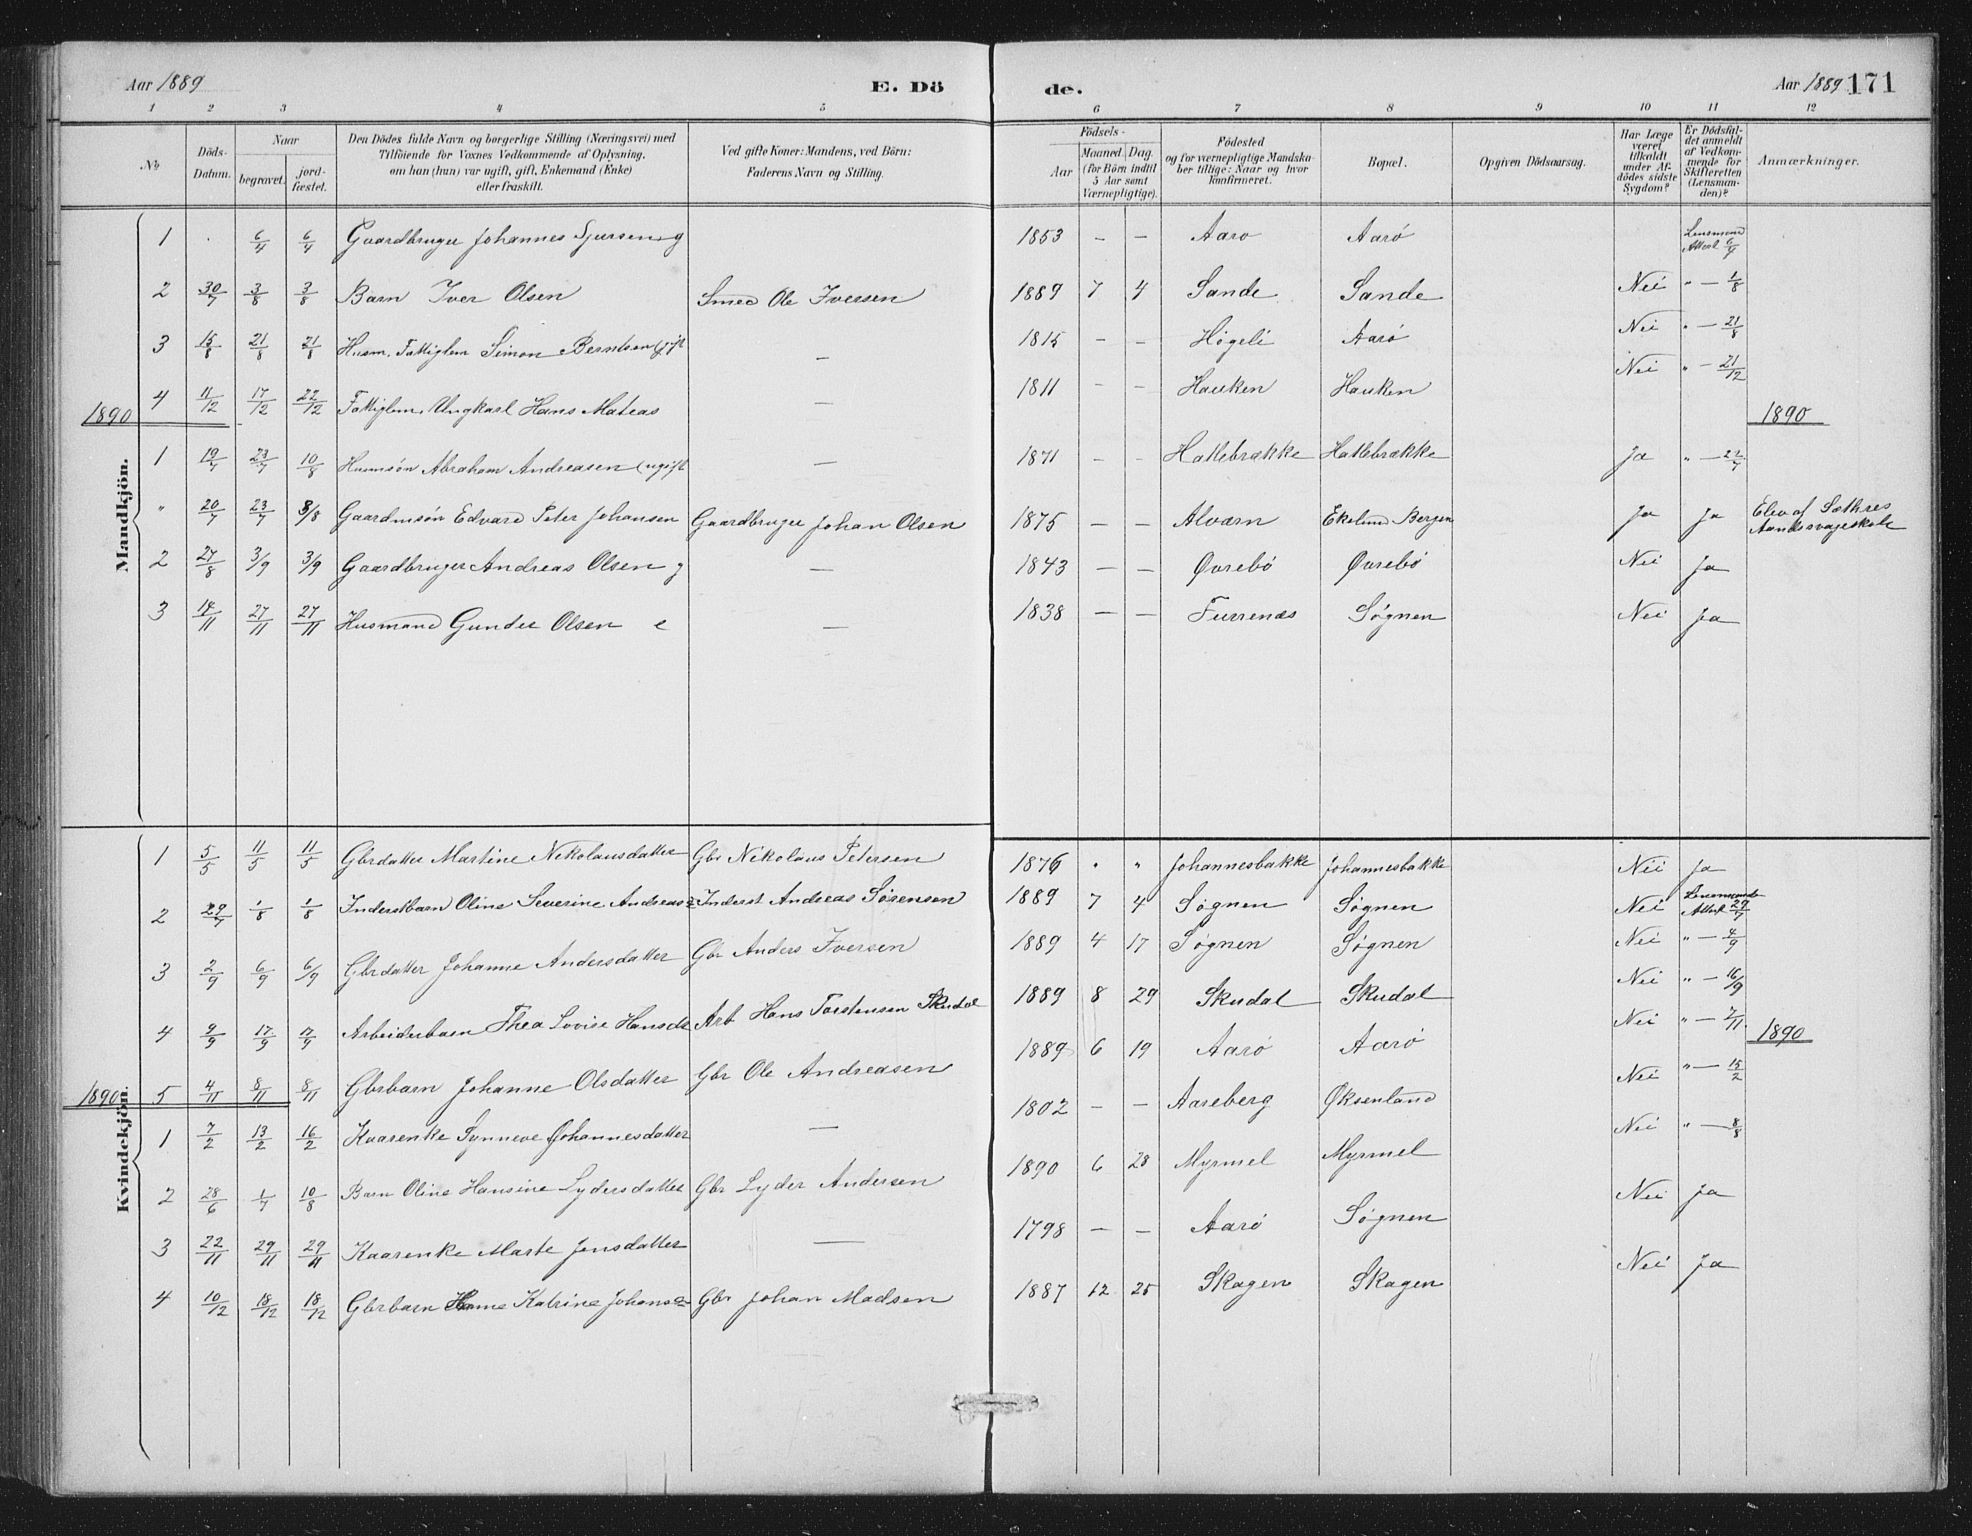 Aar 1889 E. Dö de. Aar 1889 171
1 2 3 4 5 6 7 8 9 10 11 12
No
Döds-Datum.
Naar
begravet.
jord-fæstet.
Den Dödes fulde Navn og borgerlige Stilling (Næringsvei) med
Tilföiende for Voxnes Vedkommende af Oplysning,
om han (hun) var ugift, gift, Enkemand (Enke)
eller fraskilt.
Ved gifte Koner: Mandens, ved Börn:
Faderens Navn og Stilling.
Födsels-
Aar
Maaned. Dag.
(for Börn indtil
5 Aar samt
Værnepligtige).
Födested
og for værnepligtige Mandska-
ber tillige: Naar og hvor
konfirmeret.
Bopæl.
Opgiven Dödsaarsag.
Har Læge
været
tilkaldt
under Af-
dödes sidste
Sygdom?
Er Dödsfal-
det anmeldt
af Vedkom-
mende for
Skifteretten
(Lensman-
den)?
Anmærkninger.
Mandkjön.
1 6/4 6/4 Gaardbruger Johannes Sjursen g 1853 – – Aarø Aarö Lensmand Attest 6/4
2 30/7 3/8 3/8 Barn Iver Olsen Smed Ole Iversen 1889 7 4 Sande Sande Nei " – 1/8
3 15/8 21/8 21/8 Husm. Fattiglem Simon Berntsen gift – 1815 – – Högeli Aarö Nei " – 21/8
4 11/12 17/12 22/12 Fattiglem Ungkarl Hans Mateas – 1811 – – Hauken Hauken Nei " – 21/12
1890 1890
1 19/7 23/7 10/8 Husmsøn Abraham Andreasen (ugift – 1871 – – Hatlebrække Hatlebrække Ja " – 22/7
" 20/7 23/7 3/8 Gaardmsøn Edvard Peter Johansen Gaardbruger Johan Olsen 1875 – – Alværn Ekelund Bergen Ja Ja Elev af Sæthres Aandssvageskole
2 27/8 3/9 3/9 Gaardbruger Andreas Olsen g – 1843 – – Øvrebö Øvrebö Nei Ja
3 14/11 27/11 27/11 Husmand Gunder Olsen e – 1838 – – Furrenes Søgnen Nei Ja
Kvindekjön.
1 5/5 11/5 11/5 Gbrdatter Martine Nikolausdatter Gbr Nikolaus Petersen 1876 " " Johannesbakke Johannesbakke Nei Ja
2 29/7 1/8 1/8 Inderstbarn Oline Severine Andreas= Inderst Andreas Sørensen 1889 7 4 Søgnen Søgnen Nei Lensmands Attest 29/7
3 2/9 6/9 6/9 Gbrdatter Johanne Andersdatter Gbr Anders Iversen 1889 4 17 Søgnen Søgnen Nei " – 4/9
4 9/9 17/9 17/9 Arbeiderbarn Thea Lovise Hansdt Arb Hans Torstensen Skudal 1889 8 29 Skudal Skudal Nei " – 16/9
5 4/11 8/11 8/11 Gbrbarn Johanne Olsdatter Gbr Ole Andreasen 1889 6 19 Aarö Aarö Nei " – 7/11
1890 1890
1 7/2 13/2 16/2 Kaarenke Synneve Johannesdatter – 1802 – – Aareberg Øksenland Nei " – 15/2
2 28/6 1/7 10/8 Barn Oline Hansine Lydersdatter Gbr Lyder Andersen 1890 6 28 Myrmel Myrmel Nei " – 8/8
3 22/11 29/11 29/11 Kaarenke Marte Jensdatter – 1798 – – Aarö Søgnen Nei Ja
4 10/12 18/12 18/12 Gbrbarn Hanne Katrine Johans= Gbr Johan Madsen 1887 12 25 Skagen Skagen Nei Ja